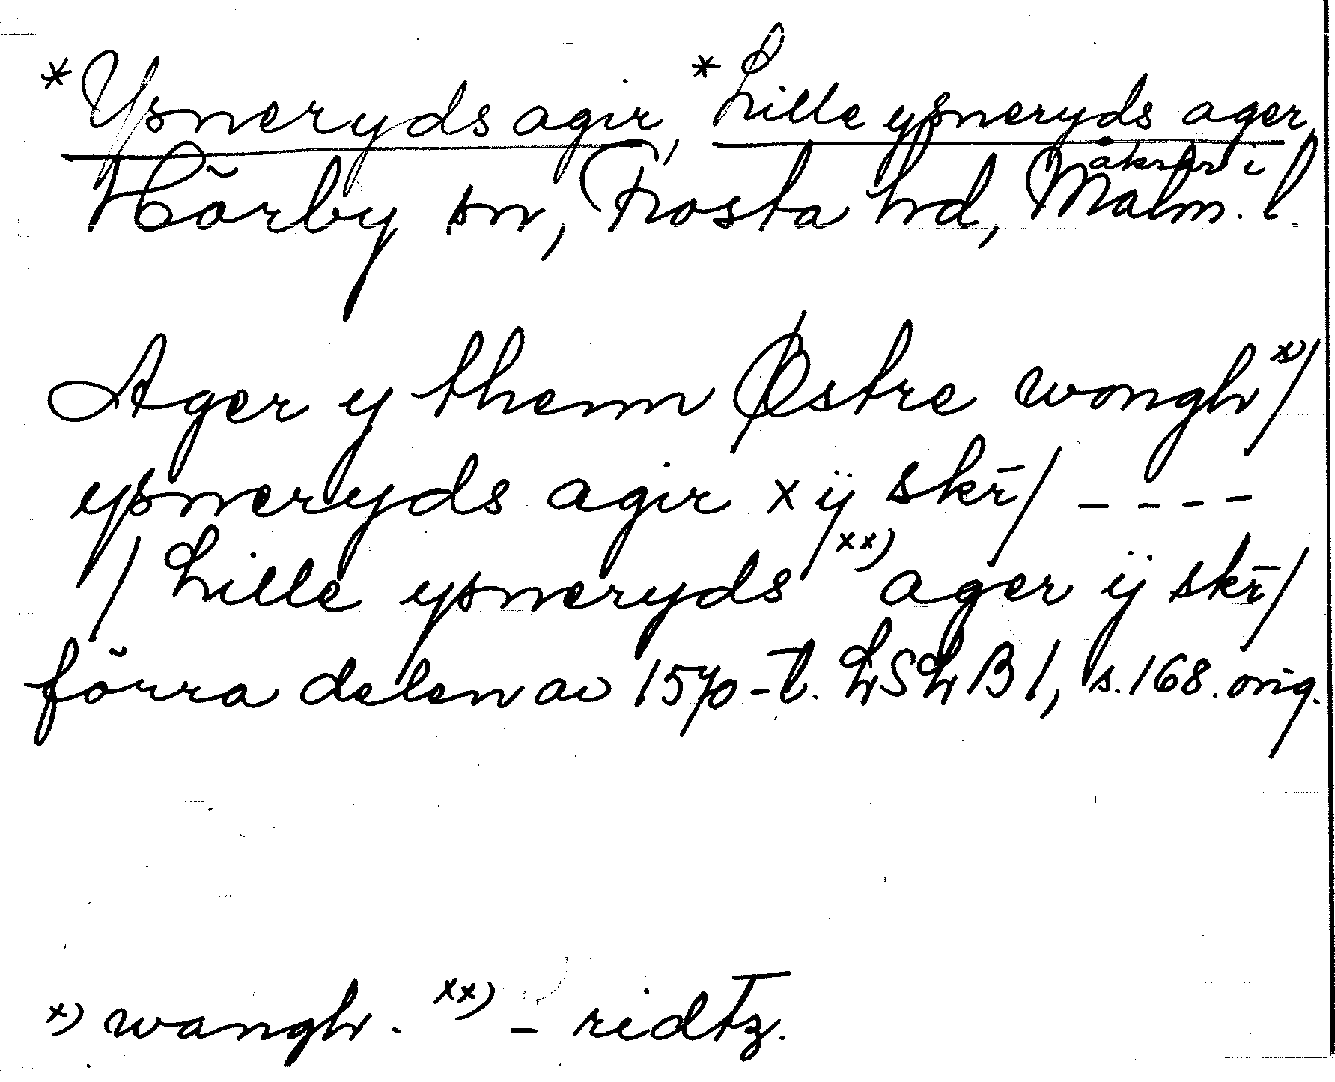 *Ysneryds agir, *Lille ysneryds ager,
åkrar i
Hörby sn, Frosta hd, Malm. l.
Ager y them Østre wongh x)/
ysneryds agir x ij skr̄/ - - - -
/ Lille ysneryds xx) ager ij skr̄/
förra delen av 1570-t. LSLB 1, s. 168. orig.
x) wangh. xx) - ridtz.